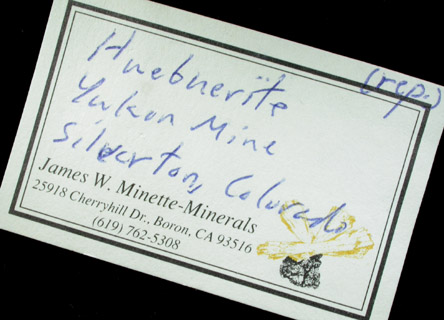 (rep.)
Huebnerite
Yukon Mine
Silverton, Colorado
James W. Minette-Minerals
25918 Cherryhill Dr., Boron, CA 93516
(619) 762-5308